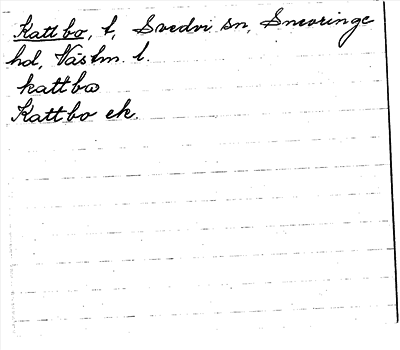 Kattbo, t, Svedvi sn, Snevringe
hd, Västm. l.
kattbω
Kattbo ek.